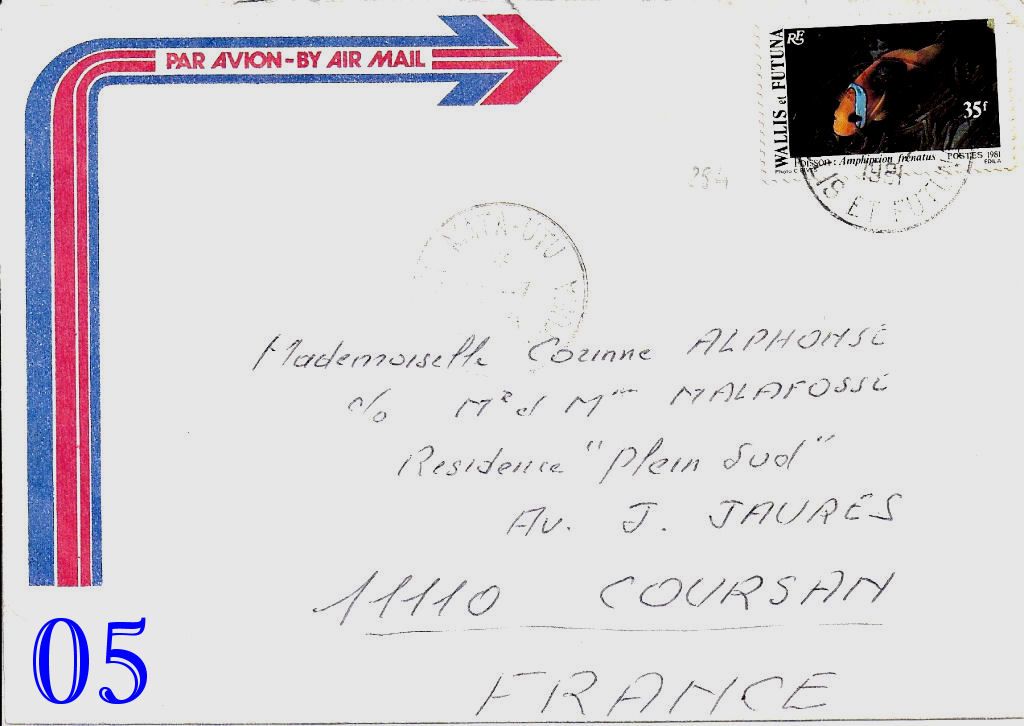 PAR AVION - BY AIR MAIL
WALLIS et FUTUNA
RF
35f
Poisson : Amphiprion frenatus POSTES 1981
EDILA
1981
LIS ET FUTUNA
254
MATA-UTU
Mademoiselle Corinne ALPHONSE
c/o Mr et Mme MALAFOSSE
Residence "Plein Sud"
Av. J. JAURES
11110 COURSAN
FRANCE
05